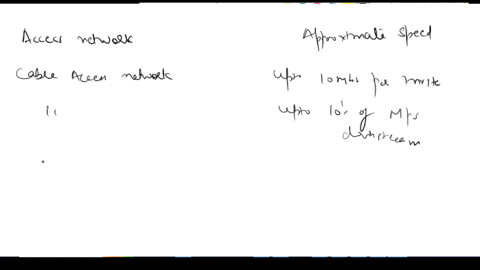 Access network Approximate Speed
Cable Access network upto 10Mbs per
11 upto 10's of Mps
downstream